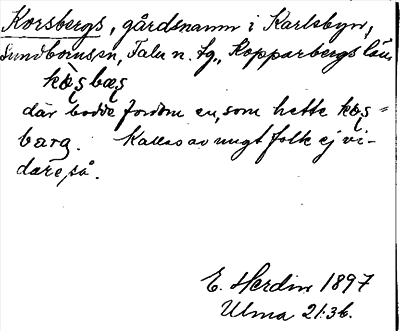 Korsbergs, gårdsnamn i Karlsbyn,
Sundbornssn, Falu n. tg., Kopparbergs län
ko̢ṣbæṣ
där bodde fordom en, som hette ko̢ṣ=
barg. Kallas av ungt folk ej vi-
dare, så.
E. Herdin 1897
Ulma 21:36.